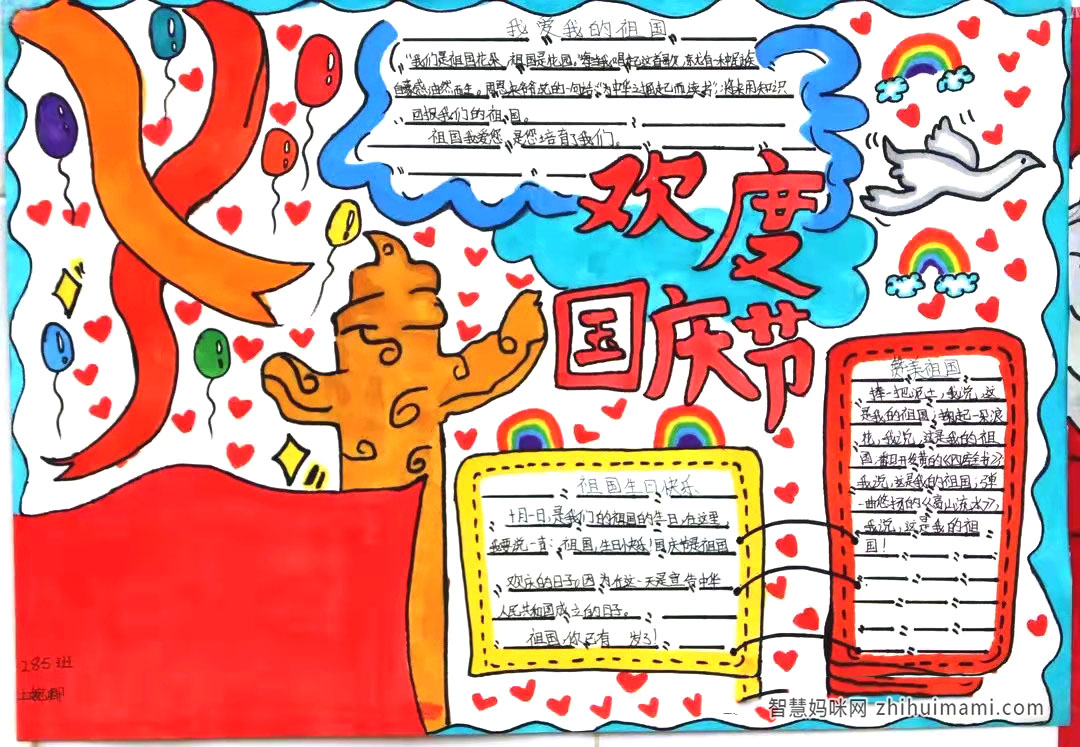 我爱我的祖国
"我们是祖国花朵,祖国是花园,"每当我唱起这首歌,就有一种民族
自豪感油然而生。周恩来爷爷说的一句话:"为中华之崛起而读书",将来用知识
回报我们的祖国。
祖国我爱您,是您培育了我们。
欢度
国庆节
赞美祖国
捧一把泥土,我说,这
是我的祖国;掬起一朵浪
花,我说,这是我的祖
国;翻开发黄的《四库全书》,
我说,这是我的祖国;弹
一曲悠扬的《高山流水》,
我说,这是我的祖
国!
祖国生日快乐
十月一日,是我们的祖国的生日,在这里
我要说一声:祖国,生日快乐!国庆节是祖国
欢庆的日子,因为在这一天是宣告中华
人民共和国成立的日子。
祖国,你已有 岁了!
285班
智慧妈咪网 zhihuimami.com